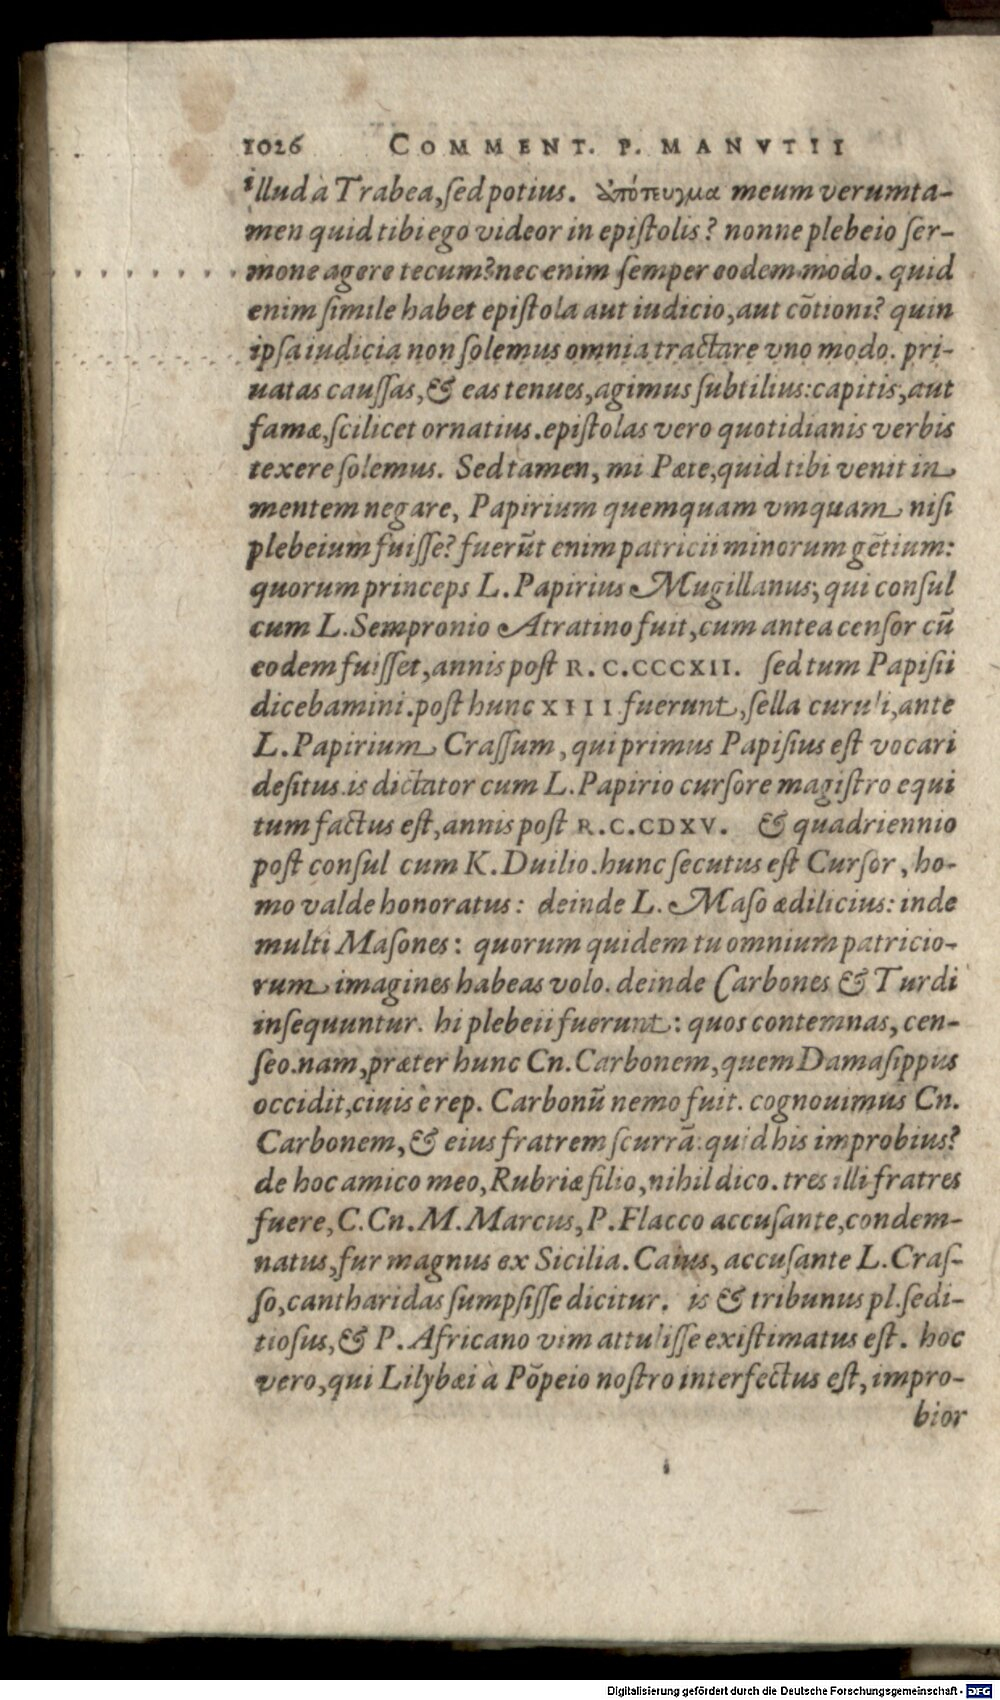 1026 COMMENT. P. MANVTII
illud à Trabea, ſed potius. ἀπότευγμα meum verumta-
men quid tibi ego videor in epiſtolis? nonne plebeio ſer-
mone agere tecum? nec enim ſemper eodem modo. quid
enim ſimile habet epiſtola aut iudicio, aut cōtioni? quin
ipſa iudicia non ſolemus omnia tractare vno modo. pri-
uatas cauſſas, & eas tenues, agimus ſubtilius: capitis, aut
famæ, ſcilicet ornatius. epiſtolas vero quotidianis verbis
texere ſolemus. Sed tamen, mi Pæte, quid tibi venit in
mentem negare, Papirium quemquam vmquam niſi
plebeium fuiſſe? fuerūt enim patricii minorum gētium:
quorum princeps L. Papirius Mugillanus; qui conſul
cum L. Sempronio Atratino fuit, cum antea cenſor cū
eodem fuiſſet, annis poſt R. C. CCCXII. ſed tum Papiſii
dicebamini. poſt hunc XIII fuerunt, ſella curuli, ante
L. Papirium Craſſum, qui primus Papiſius eſt vocari
deſitus. is dictator cum L. Papirio curſore magiſtro equi
tum factus eſt, annis poſt R. C. CDXV. & quadriennio
poſt conſul cum K. Duilio. hunc ſecutus eſt Curſor, ho-
mo valde honoratus: deinde L. Maſo ædilicius: inde
multi Maſones: quorum quidem tu omnium patricio-
rum imagines habeas volo. deinde Carbones & Turdi
inſequuntur. hi plebeii fuerunt: quos contemnas, cen-
ſeo. nam, præter hunc Cn. Carbonem, quem Damaſippus
occidit, ciuis è rep. Carbonū nemo fuit. cognouimus Cn.
Carbonem, & eius fratrem ſcurrā. quid his improbius?
de hoc amico meo, Rubriæ filio, nihil dico. tres illi fratres
fuere, C. Cn. M. Marcus, P. Flacco accuſante, condem-
natus, fur magnus ex Sicilia. Caius, accuſante L. Craſ-
ſo, cantharidas ſumpſiſſe dicitur. is & tribunus pl. ſedi-
tioſus, & P. Africano vim attuliſſe exiſtimatus eſt. hoc
vero, qui Lilybæi à Pōpeio noſtro interfectus eſt, impro-
bior
Digitalisierung gefördert durch die Deutsche Forschungsgemeinschaft - DFG